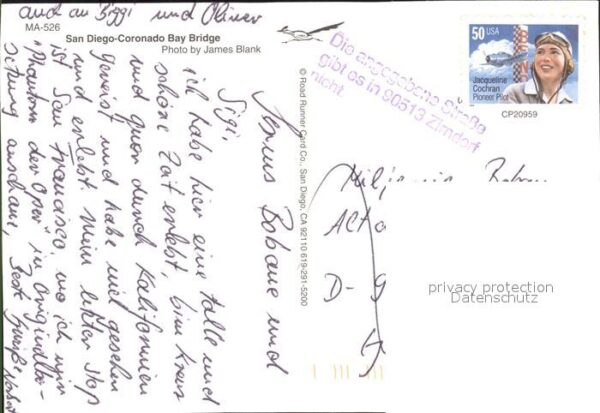 MA-526
San Diego-Coronado Bay Bridge
Photo by James Blank
© Road Runner Card Co., San Diego, CA 92110 619-291-5200
50 USA
Jacqueline
Cochran
Pioneer Pilot
CP20959
Die angegebene Straße
gibt es in 90513 Zirndorf
nicht.
Servus und
Sigi,
ich habe hier eine tolle und
schöne Zeit erlebt, bin kreuz
und quer durch Kalifornien
gereist und habe viel gesehen
und erlebt. Mein letzter Stop
ist San Francisco, wo ich mir
"Phantom der Oper" in Originalbe-
setzung anschaue. Grüße
auch an Biggi und Oliver
D-9
privacy protection
Datenschutz